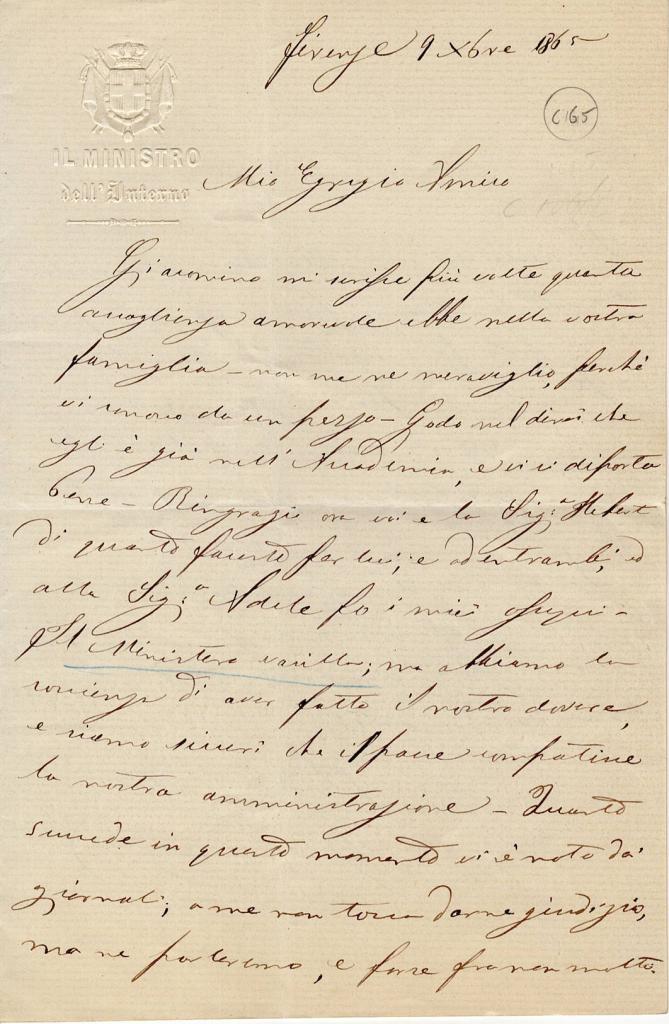 Firenze 9 Xbre 1865
C165
IL MINISTRO
dell'Interno
Mio Egregio Amico
Giacomino mi scrisse più volte quanta
accoglienza amorevole ebbe nella vostra
famiglia – non me ne meraviglio, perchè
vi conosco da un pezzo – Godo nel dirvi che
egli è già nell'Accademia, e vi si diporta
bene – Ringrazio ora voi e la Sig.ª Hebert
di quanto faceste per lui; e ad entrambi, ed
alla Sig.ª Adele fo i miei ossequi –
Il Ministero vacilla; ma abbiamo la
coscienza di aver fatto il nostro dovere,
e siamo sicuri che il paese
la nostra amministrazione – Quanto
succede in questo momento vi è noto dai
giornali; a me non tocca darne giudizio,
ma ne parleremo, e forse fra non molto.